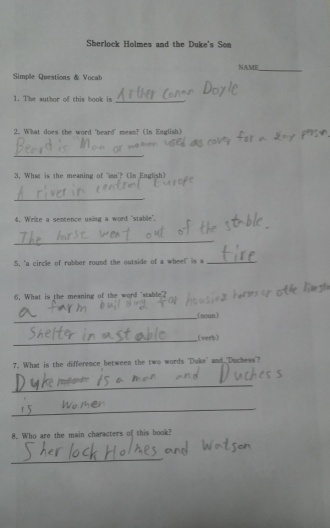 Sherlock Holmes and the Duke's Son
NAME
Simple Questions & Vocab
1. The author of this book is Arther Conan Doyle
2. What does the word 'beard' mean? (In English)
Beard is Man or women used as cover for a gay person.
3. What is the meaning of (In English)
A river in central Europe
4. Write a sentence using a word 'stable'.
The horse went out of the stable.
5. 'a circle of rubber round the outside of a wheel' is a tire
6. What is the meaning of the word 'stable'?
a farm building for housing horses or other
(noun)
Shelter in a stable (verb)
7. What is the difference between the two words 'Duke' and 'Duchess'?
Duke is a man and Duchess
is women
8. Who are the main characters of this book?
Sherlock Holmes and Watson